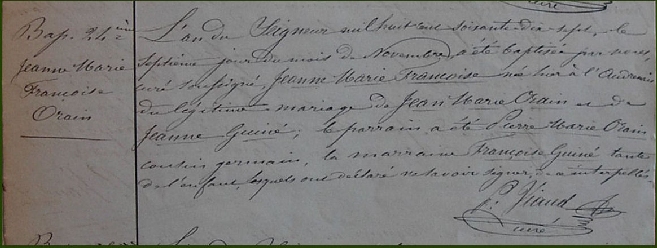 Bap. 24e
Jeanne Marie
Françoise
Orain
L'an du Seigneur mil huit cent soixante dix sept, le
septième jour du mois de Novembre, a été baptisée par nous,
curé soussigné, Jeanne Marie Françoise née hier à
du légitime mariage de Jean Marie Orain et de
Jeanne Guiné; le parrain a été Pierre Marie Orain
cousin germain, la marraine Françoise Guiné tante
de l'enfant lesquels ont déclaré ne savoir signer, interpellés
Viaud
curé